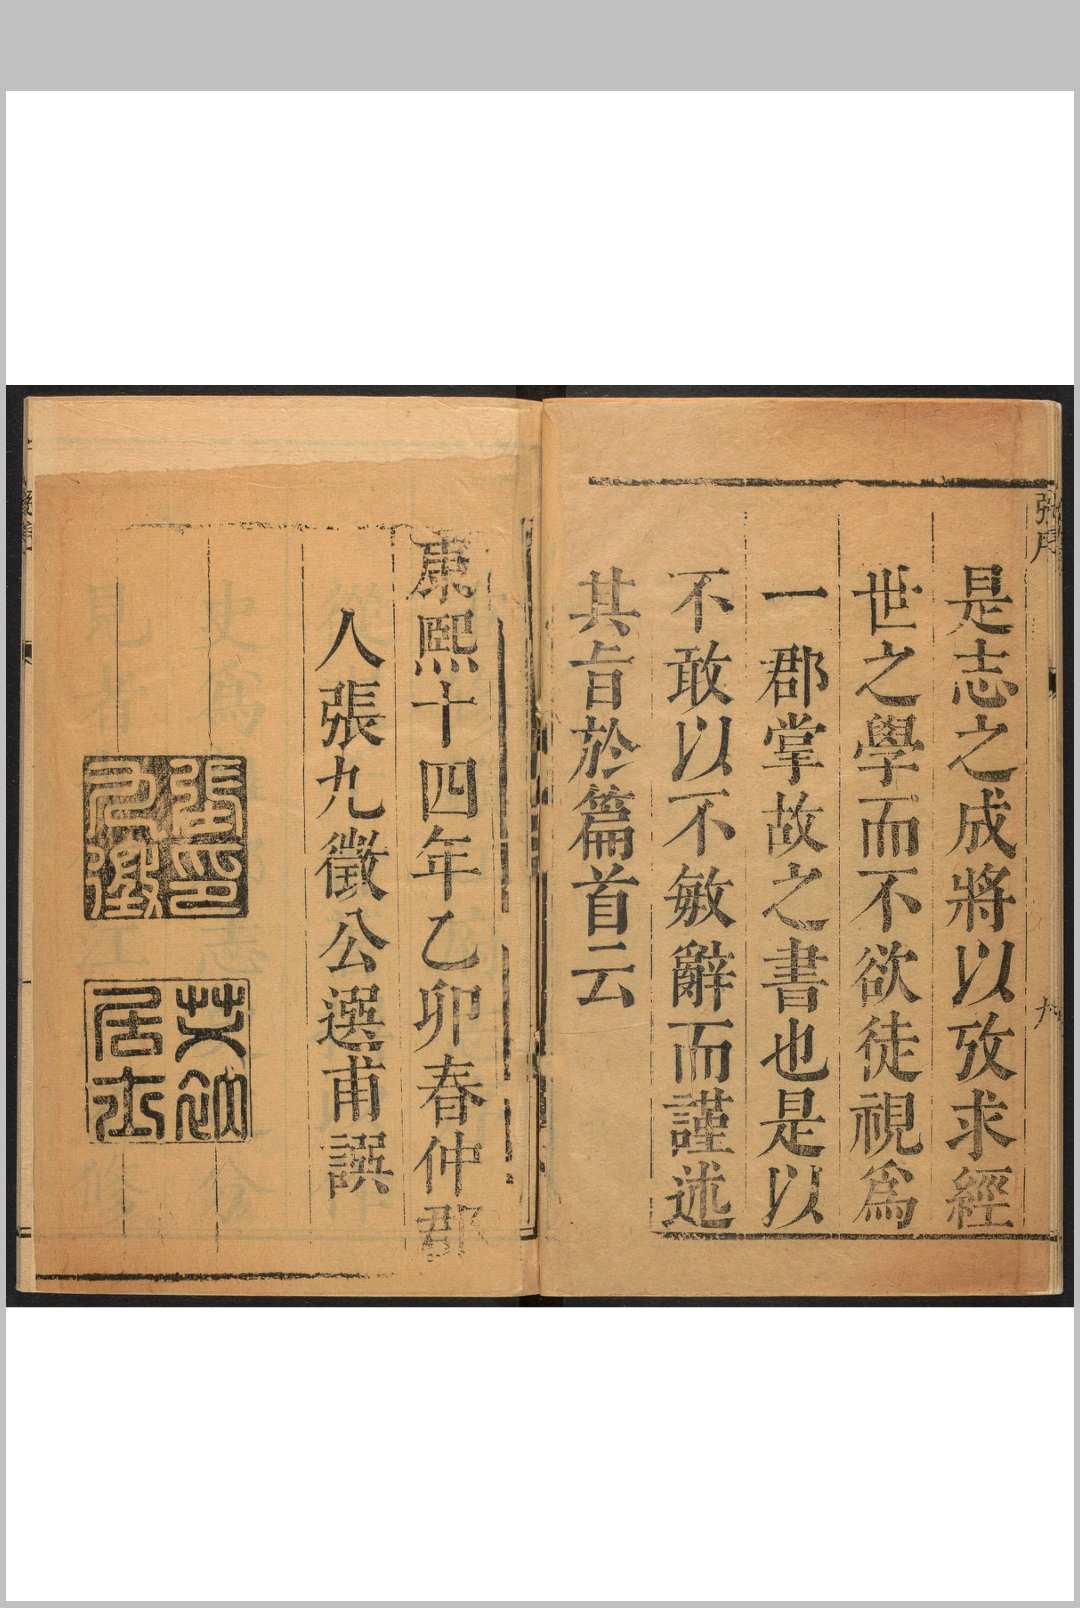 張序
是志之成將以攷求經
世之學而不欲徒視爲
一郡掌故之書也是以
不敢以不敏辭而謹述
其旨於篇首云
九
康熙十四年乙卯春仲郡
人張九徵公選甫譔
張九徵印
居士